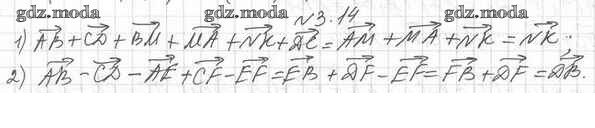 gdz.moda gdz.moda gdz.moda
№3.14
1) AB + CD + BM + MA + NK + DC = AM + MA + NK = NK.
2) AB - CD - AE + CF - EF = EB + DF - EF = FB + DF = DB.